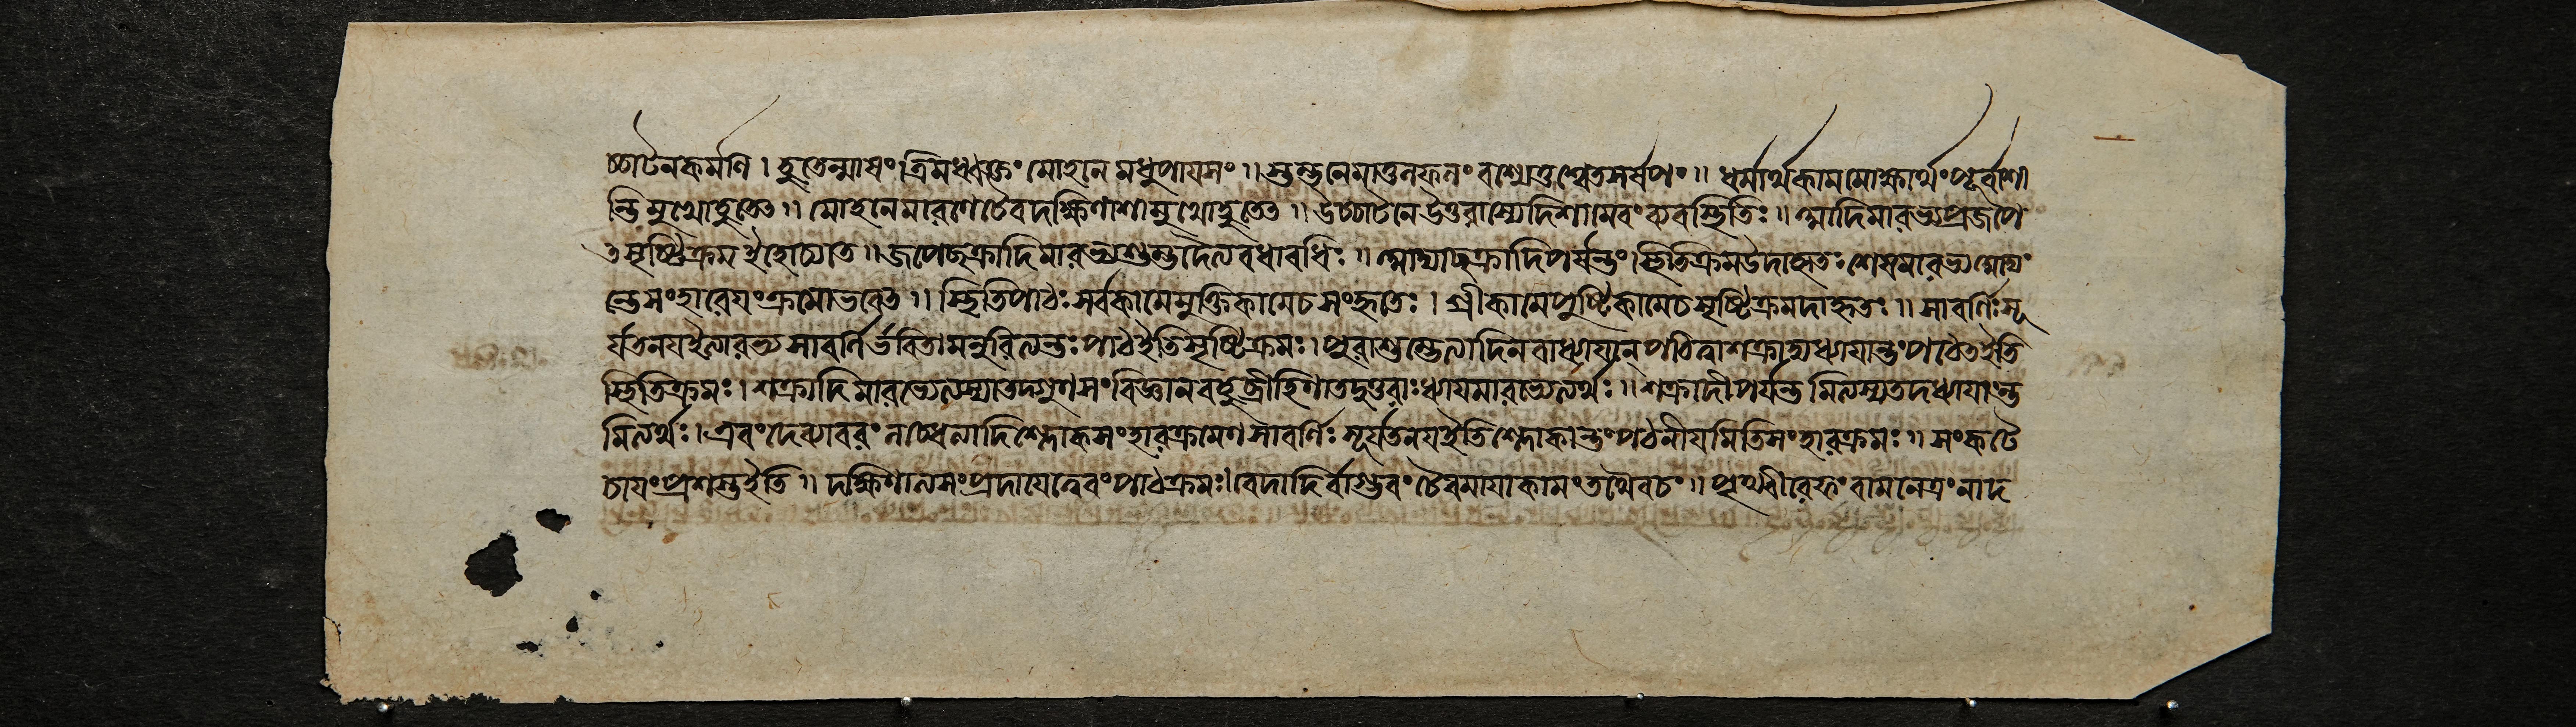 চ্চাটনকর্মণি । হুতেন্মাষং ত্রিমধ্বক্তং মোহান মধুপায়সং ॥ স্তম্ভনেমাতুনফনং বশ্যেতুশ্বেতসর্ষপং ॥ ধর্মার্থকামমোক্ষার্থং পূর্বাশা
ন্তি মুখোহুতেৎ ॥ মোহনেমারণেচৈবদক্ষিণাশামুখোহুতেৎ ॥ উচ্চাটনেউত্তরাস্যেদিশামেবং ব্যবস্থিতিঃ ॥ আদিমারভ্যপ্রজপে
ৎসৃষ্টিক্রমইহোচ্যতে ॥ জপেচ্ছক্রাদিমারভ্যশুম্ভদৈত্যবধাবধিঃ ॥ আদ্যাচ্ছক্রাদিপর্যন্তং স্থিতিক্রমউদাহৃতঃ শেষমারভ্যমোদ্যং
ন্তেসংহারেয়ং ক্রমোভবেত ॥ স্থিতিপাঠঃ সর্বকামেমুক্তিকামেচসংহৃতেঃ । শ্রীকামেপুষ্টিকামেচসৃষ্টিক্রমদাহৃতঃ ॥ সাবর্ণিঃ সূ
র্যতনয়ইত্যারভ্য সাবর্ণির্ভবিতামনুরিত্যন্তঃ পাঠইতিসৃষ্টিক্রমঃ । পুরাশুম্ভেত্যাদিনবাধ্যায়ান্পঠিত্বাশক্রাদ্যধ্যায়ান্তং পঠেতইতি
স্থিতিক্রমঃ । শক্রাদিমারভ্যেত্যস্যাতদ্গুণসংবিজ্ঞানবহুব্রীহিণাতদুত্তরাঃধ্যায়মারভ্যেত্যর্থঃ ॥ শক্রাদীপর্যন্ত মিত্যস্যতদধ্যায়াংন্ত
মিত্যর্থঃ । এবং দেব্যাবরং নব্ধেত্যাদিশ্লোকসংহারক্রমেণসাবর্ণিঃ সূর্যতনয়ইতিশ্লোকান্তং পঠনীয়মিতিসংহারক্রমঃ ॥ সংকটে
চায়ং প্রশস্তইতি ॥ দক্ষিণাত্যসংপ্রদায়েত্বেবং পাঠক্রমঃ । বেদাদির্বাগ্ভবং চৈবমায়াকামং তথৈবচং ॥ পৃথ্বীরেফং বামনেত্রং নাদ